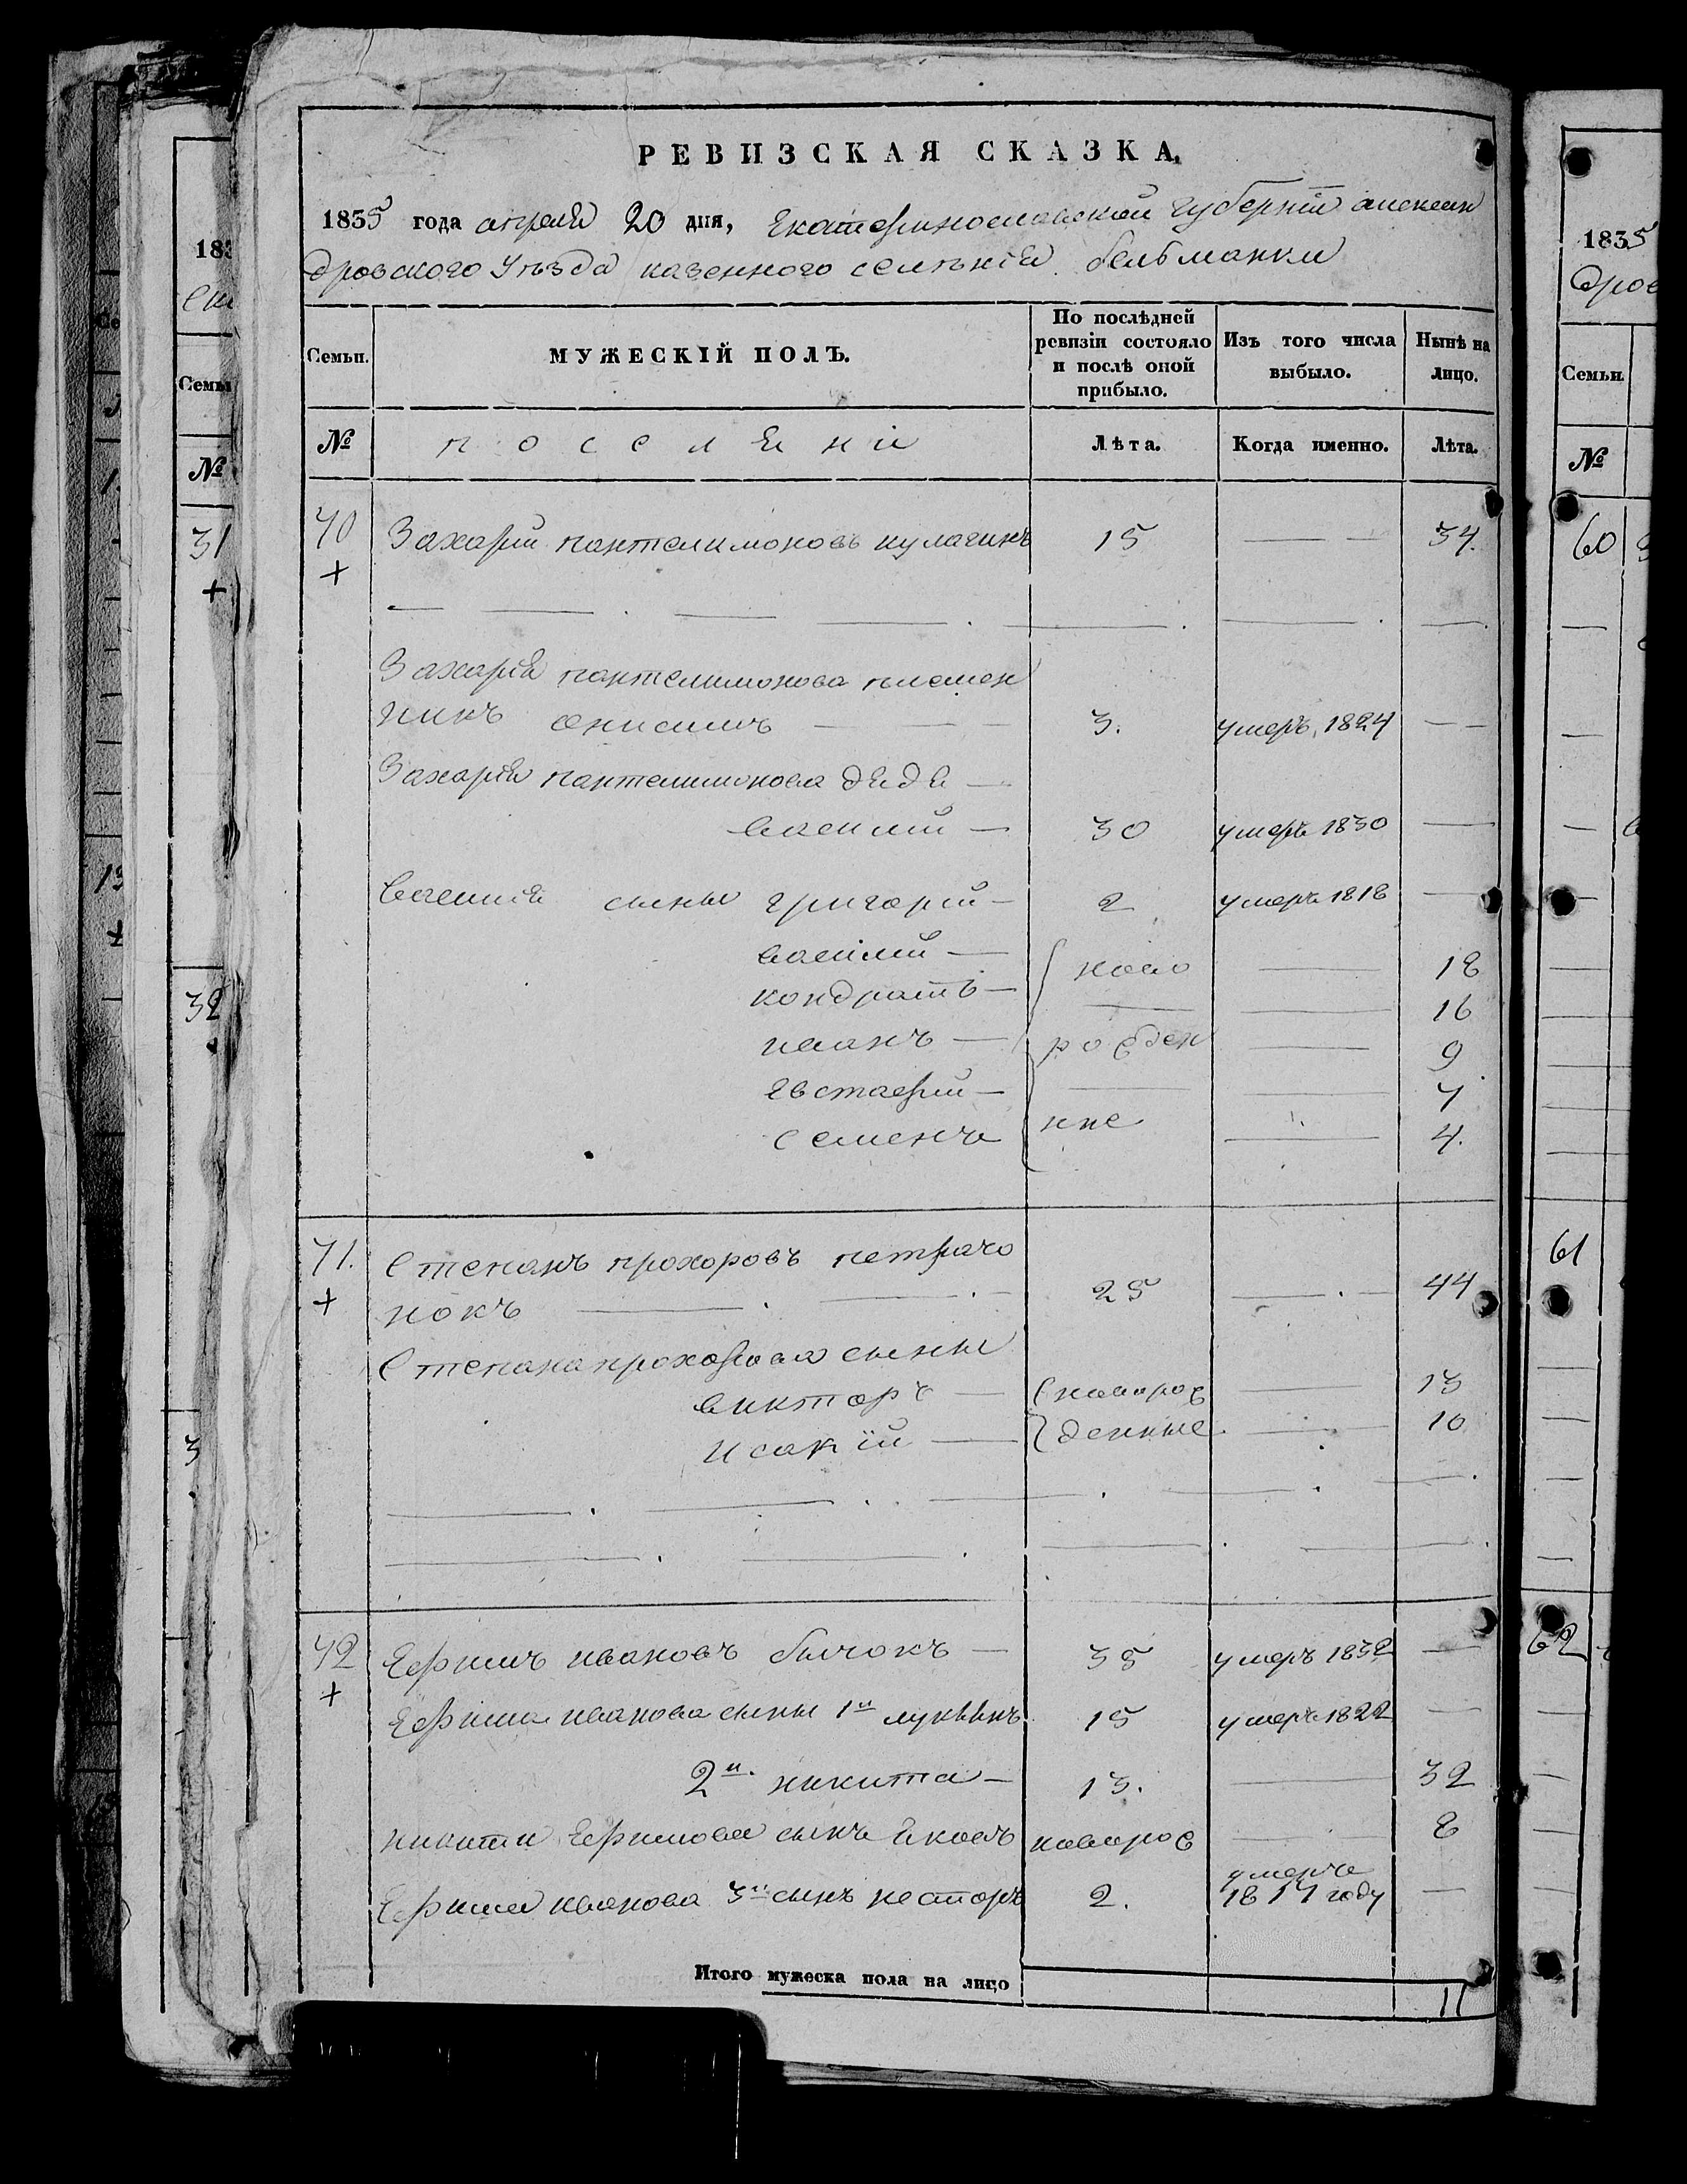 РЕВИЗСКАЯ СКАЗКА,
1835 года апреля 20 дня, Екатеринославской губернiи александ
дровского уѣзда казенного селѣнiя бельманки
Семьи.
МУЖЕСКІЙ ПОЛЪ.
По послѣдней ревизіи состояло и послѣ оной прибыло.
Изъ того числа выбыло.
Нынѣ на лицо.
№
поселяне
Лѣта.
Когда именно.
Лѣта.
70 Захарий пантелимоновъ кулагинъ 15 — — 34.
+
Захария пантелимонова племен
никъ онисимъ — 3. умеръ 1824 —
Захария пантелимонова дядя —
василий — 30 умеръ 1830 —
василия сыны григорий — 2 умеръ 1818 —
василий — ново — 18
кондратъ — — 16
иванъ — рожден — 9
евстафий — — 7
семенъ ные — 4.
71. Степанъ прохоровъ петрачо
+ нокъ — 25 — 44
Степана прохорова сыны
викторъ — новорож — 13
исакiй — денные — 10
72 Ефимъ ивановъ бычокъ — 35 умеръ 1832 —
+
Ефима иванова сыны 1й лукьянъ 15 умеръ 1822 —
2й. никита — 13. — 32
никиты Ефимова сынъ яковъ новорож — 8
Ефима иванова 3й сынъ несторъ 2. умеръ —
1817 году
Итого мужеска пола на лицо 11
183
Семьи
№
31
+
32
3
1835
дров
Семьи.
№
60
61
62